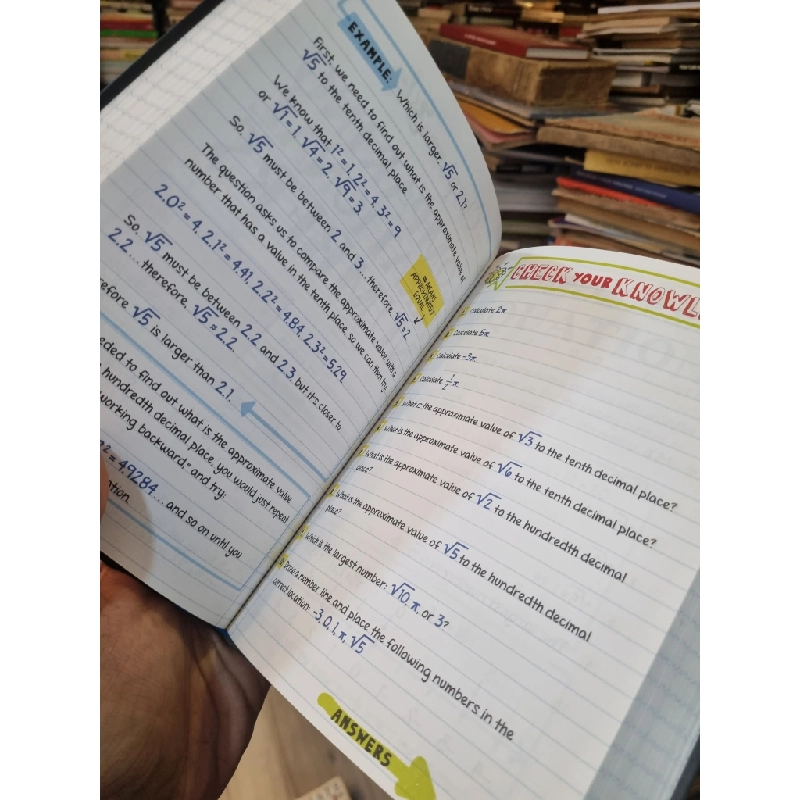 EXAMPLE: Which is larger, √5 or 2.1?
First, we need to find out what is the approximate value of
√5 to the tenth decimal place.
We know that 1² = 1, 2² = 4, 3² = 9
or √1 = 1, √4 = 2, √9 = 3.
So, √5 must be between 2 and 3 ... therefore, √5 ≈ 2.
The question asks us to compare the approximate value with a
number that has a value in the tenth place, so we can then try
2.0² = 4, 2.1² = 4.41, 2.2² = 4.84, 2.3² = 5.29.
So, √5 must be between 2.2 and 2.3, but it's closer to
2.2 ... therefore, √5 ≈ 2.2.
√5 is larger than 2.1.
to find out what is the approximate value
hundredth decimal place, you would just repeat
working backward" and try:
= 4.9284 ... and so on until you
MEANS
APPROXIMATELY
EQUAL
CHECK YOUR
calculate 2π.
calculate 6π.
calculate -3π.
calculate ½π.
What is the approximate value of √3 to the tenth decimal place?
What is the approximate value of √6 to the tenth decimal place?
What is the approximate value of √2 to the hundredth decimal
place?
What is the approximate value of √5 to the hundredth decimal
place?
What is the largest number: √10, π, or 3?
a number line and place the following numbers in the
correct location: -3, 0, 1, π, √5
ANSWERS